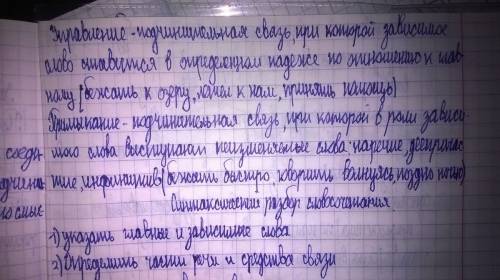 Управление - подчинительная связь, при которой зависимое
слово ставится в определенном падеже по отношению к глав
ному (бежать к озеру, лечь к нам, принять помощь)
Примыкание - подчинительная связь, при которой в роли зависи
мого слова выступают неизменяемые слова: наречие, дееприча
стие, инфинитив (бежать быстро, говорить волнуясь, поздно ночью)
Синтаксический разбор словосочетания
1) указать главные и зависимые слова
2) Определить части речи и средства связи